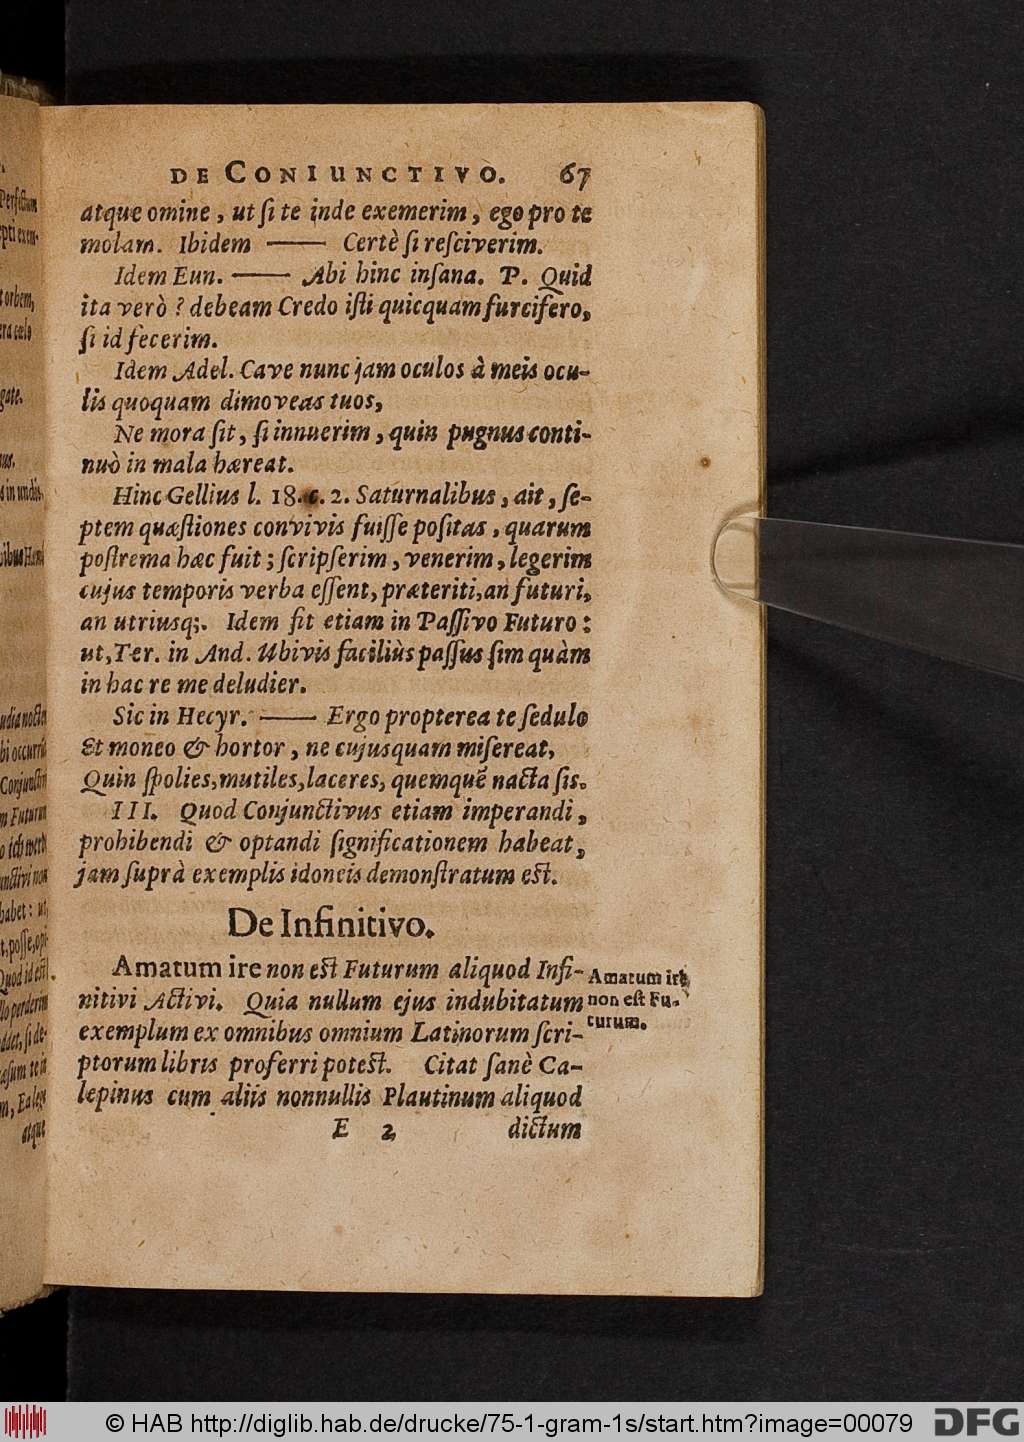 DE CONIUNCTIVO. 67
atque omine, ut ſi te inde exemerim, ego pro te
molam. Ibidem —— Certè ſi reſciverim.
Idem Eun. —— Abi hinc inſana. P. Quid
ita verò? debeam Credo iſti quicquam furcifero,
ſi id fecerim.
Idem Adel. Cave nunc jam oculos à meis ocu-
lis quoquam dimoveas tuos,
Ne mora ſit, ſi innuerim, quin pugnus conti-
nuò in mala hæreat.
Hinc Gellius l. 18. c. 2. Saturnalibus, ait, ſe-
ptem quæſtiones convivis fuiſſe poſitas, quarum
poſtrema hæc fuit; ſcripſerim, venerim, legerim
cujus temporis verba eſſent, præteriti, an futuri,
an utriusq;. Idem fit etiam in Paſſivo Futuro:
ut, Ter. in And. Ubivis faciliùs paſſus ſim quàm
in hac re me deludier.
Sic in Hecyr. —— Ergo propterea te ſedulo
Et moneo & hortor, ne cujusquam miſereat,
Quin ſpolies, mutiles, laceres, quemquē nacta ſis.
III. Quod Conjunctivus etiam imperandi,
prohibendi & optandi ſignificationem habeat,
jam ſuprà exemplis idoneis demonſtratum eſt.
De Infinitivo.
Amatum ire non eſt Futurum aliquod Infi-
nitivi Activi. Quia nullum ejus indubitatum
exemplum ex omnibus omnium Latinorum ſcri-
ptorum libris proferri poteſt. Citat ſanè Ca-
lepinus cum aliis nonnullis Plautinum aliquod
E 2 dictum
Amatum ire
non eſt Fu-
turum.
© HAB http://diglib.hab.de/drucke/75-1-gram-1s/start.htm?image=00079
DFG